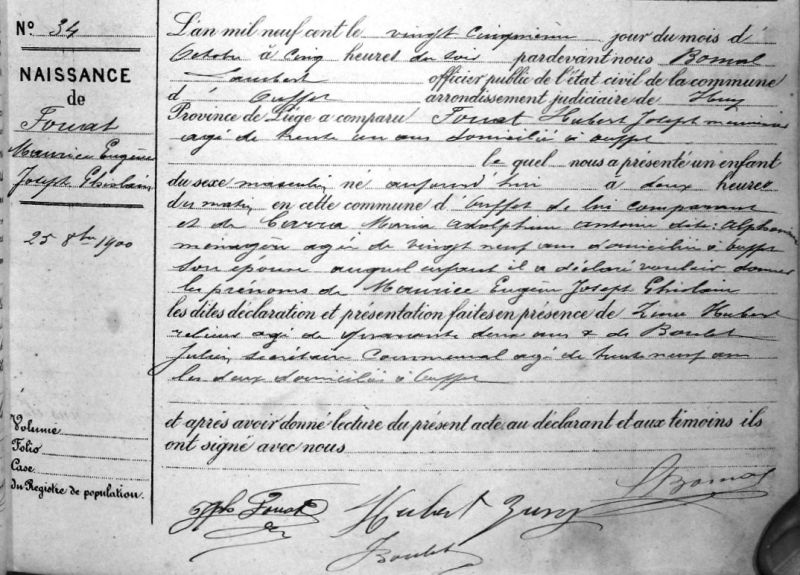 N° 34
NAISSANCE
de
Fouat
Maurice Eugène
Joseph Ghislain
25 8bre 1900
Volume
Folio
Case
du Registre de population.
L'an mil neuf cent le vingt cinquième jour du mois d'
Octobre à cinq heures du soir pardevant nous Bomal
Lambert officier public de l'état civil de la commune
d' Ouffet arrondissement judiciaire de Huy
Province de Liège a comparu Fouat Hubert Joseph menuisier
agé de trente un ans domicilié à Ouffet
le quel nous a présenté un enfant
du sexe masculin né aujourd'hui à deux heures
du matin en cette commune d'Ouffet de lui comparant
et de Maria Adolphine Antoine dite: Alphonsine
ménagère agée de vingt neuf ans domiciliée à Ouffet
son épouse auquel enfant il a déclaré vouloir donner
les prénoms de Maurice Eugène Joseph Ghislain
les dites déclaration et présentation faites en présence de Hubert
relieur agé de quarante deux ans & de Boulet
Julien secrétaire communal agé de trente neuf ans
les deux domiciliés à Ouffet
et après avoir donné lecture du présent acte au déclarant et aux témoins ils
ont signé avec nous
LBomal
Jph Fouat
Hubert
Boulet